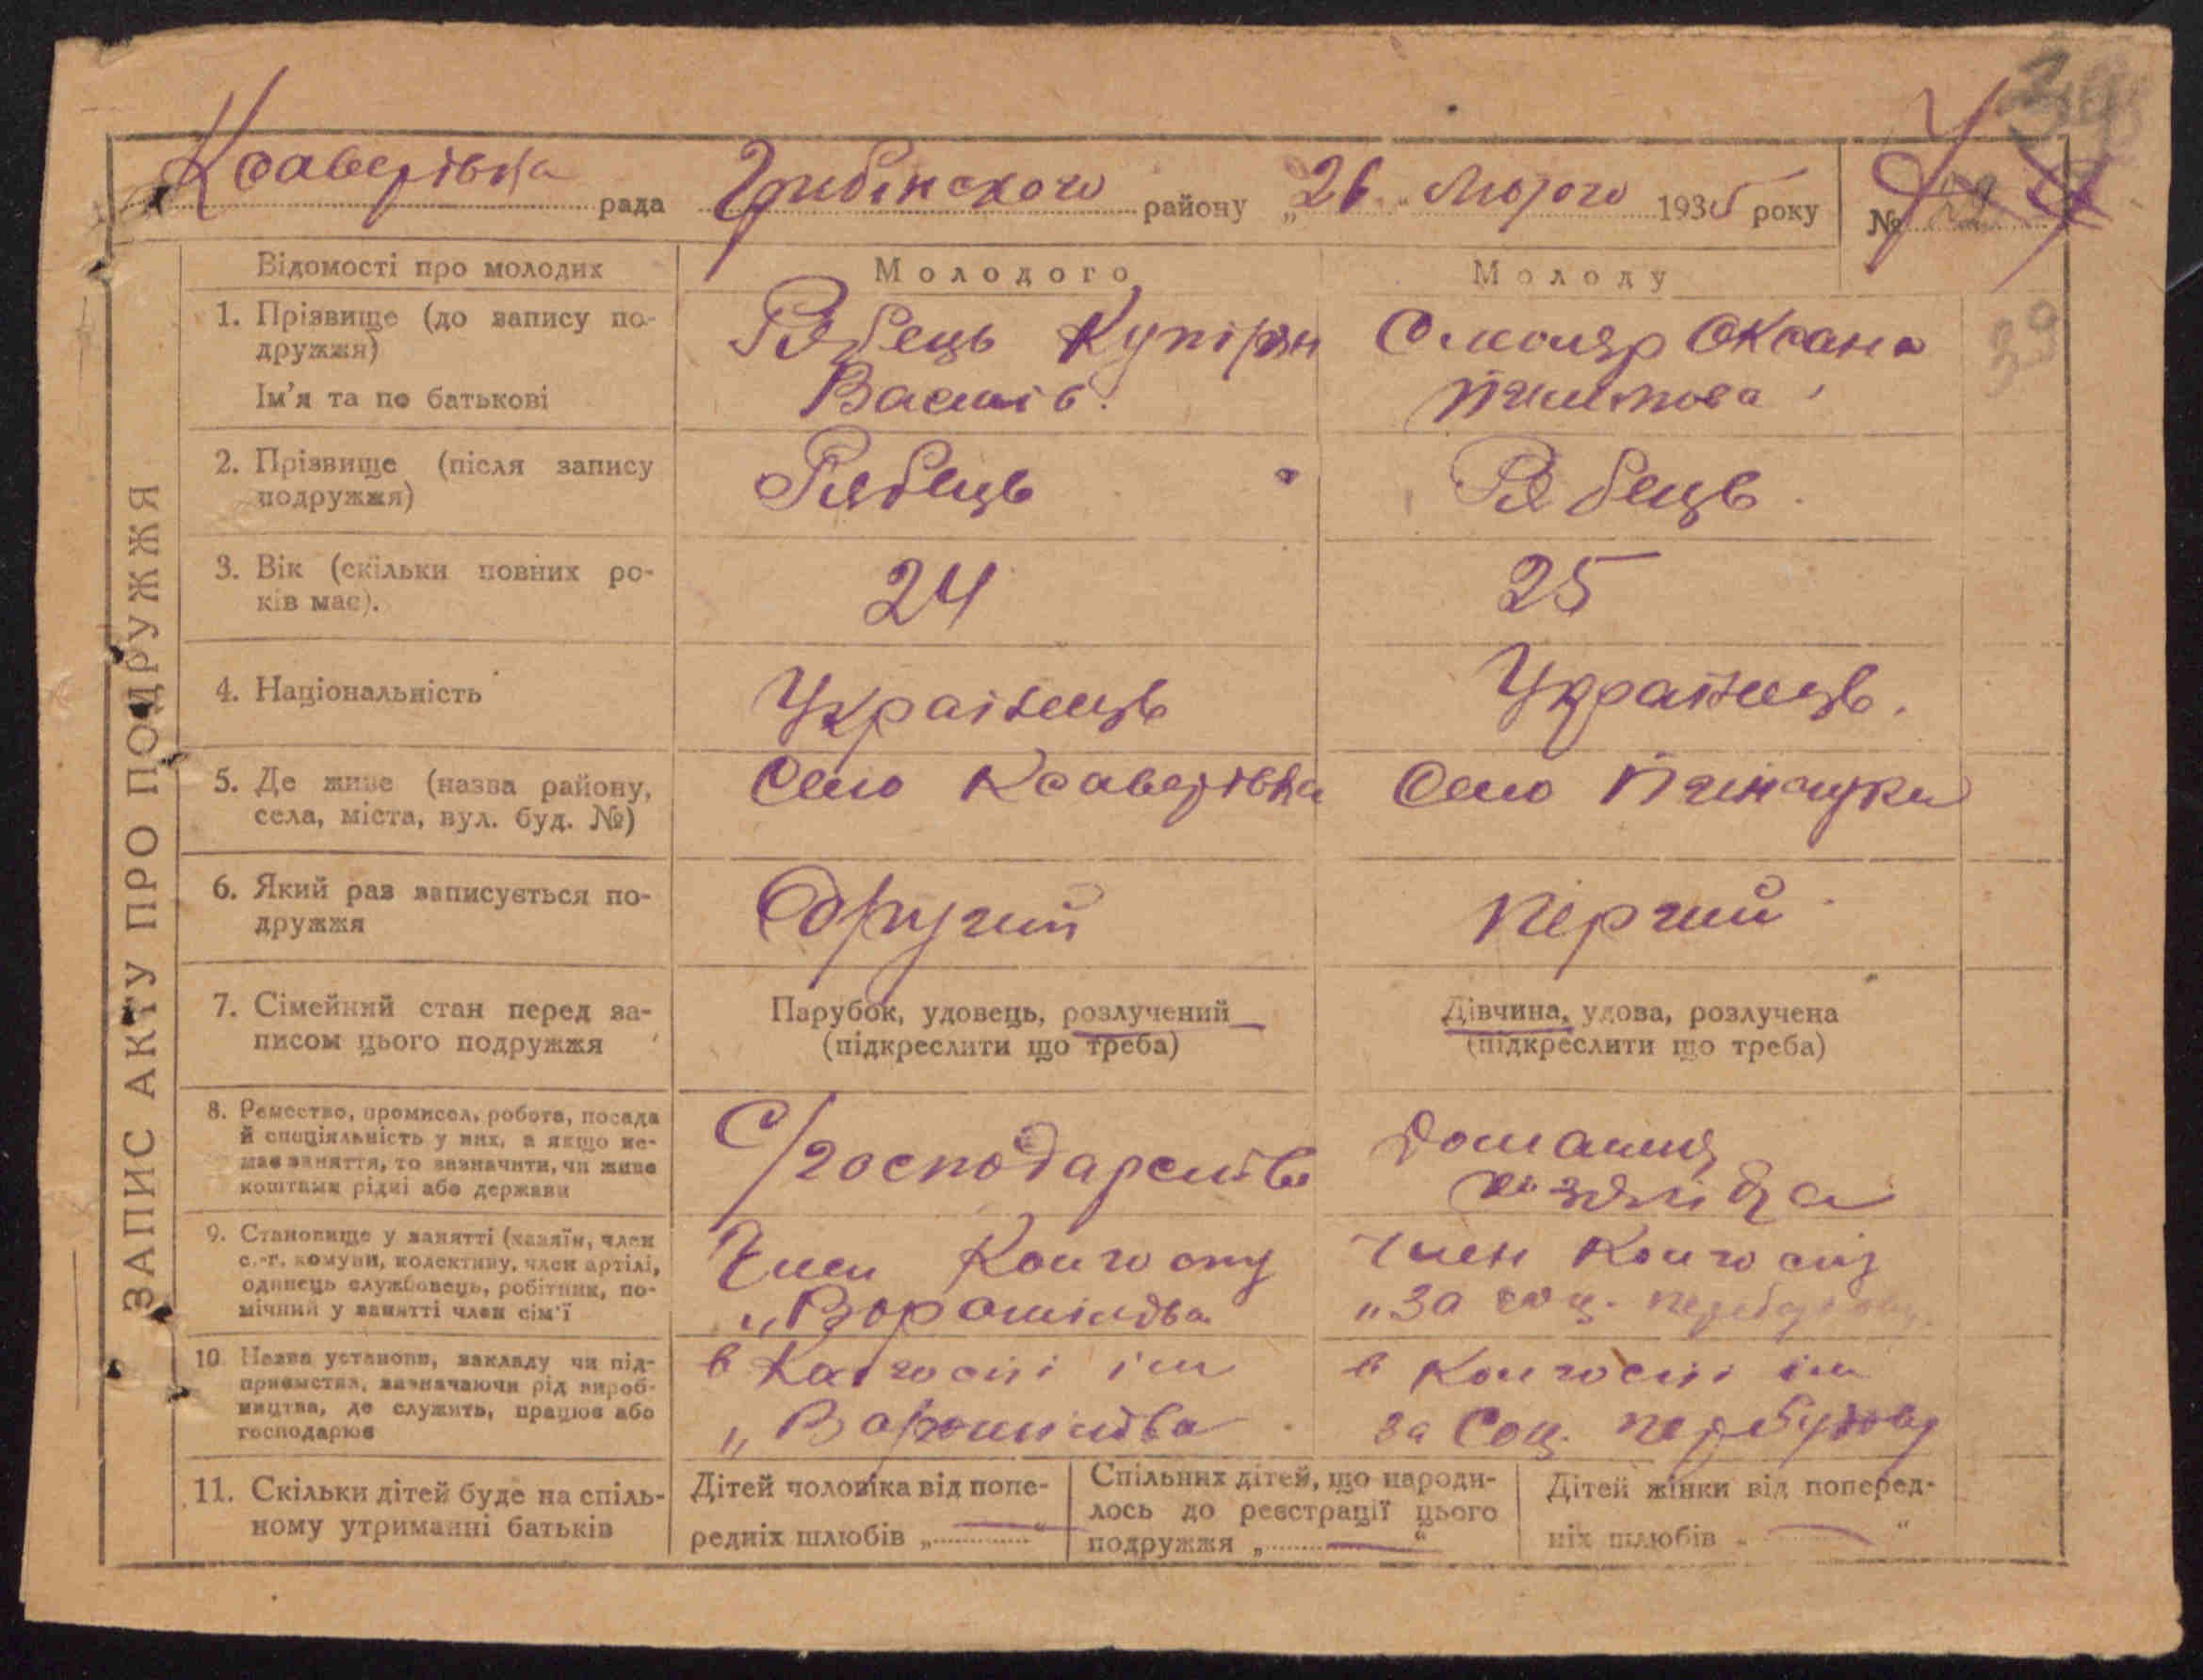 39
Ксаверівка рада Грибінского району „26" Лютого 1935 року №
ЗАПИС АКТУ ПРО ПОДРУЖЖЯ
Відомості про молодих Молодого Молоду
1. Прізвище (до запису по-
дружжя)
Ім'я та по батькові
Рябець Купіріян
Василів.
Столяр Оксана
39
2. Прізвище (після запису
подружжя)
Рябець
Рябець.
3. Вік (скільки повних ро-
ків має).
24
25
4. Національність
Українець
Українець.
5. Де живе (назва району,
села, міста, вул. буд. №)
Село Ксаверівка
Село Пгінчуки
6. Який раз записується по-
дружжя
Другий
Перший
7. Сімейний стан перед за-
писом цього подружжя
Парубок, удовець, розлучений
(підкреслити що треба)
Дівчина, удова, розлучена
(підкреслити що треба)
8. Ремество, промисел, робота, посада
й спеціяльність у них, а якщо не-
має заняття, то зазначити, чи живе
коштами рідні або держави
С/господарство
Домашня
9. Становище у занятті (хазяїн, член
с.-г. комуни, колективу, член артілі,
одинець службовець, робітник, по-
мічний у занятті член сім'ї
Член Колгоспу
„Ворошилова
Член Колгоспу
„За соц. перебудову
10. Назва установи, закладу чи під-
приємства, зазначаючи рід вироб-
ництва, де служить, працює або
господарює
в Колгоспі ім
„Ворошилова
в Колгоспі ім
за Соц. перебудову
11. Скільки дітей буде на спіль-
ному утриманні батьків
Дітей чоловіка від попе-
редніх шлюбів „—"
Спільних дітей, що народи-
лось до реєстрації цього
подружжя „—"
Дітей жінки від поперед-
ніх шлюбів „—"